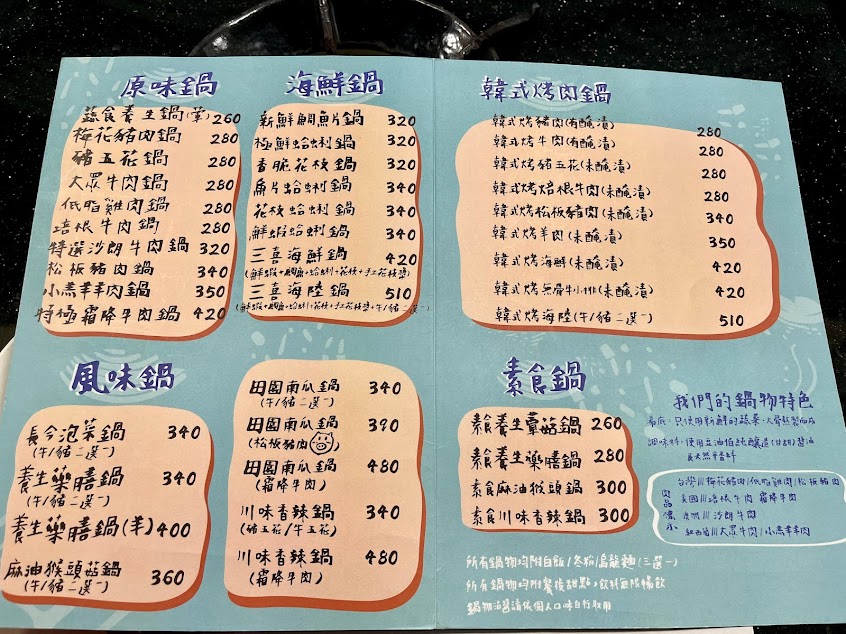 原味鍋
蔬食養生鍋(葷) 260
梅花豬肉鍋 280
豬五花鍋 280
大眾牛肉鍋 280
低脂雞肉鍋 280
培根牛肉鍋 280
特選沙朗牛肉鍋 320
松板豬肉鍋 340
小羔羊肉鍋 350
特極霜降牛肉鍋 420
海鮮鍋
新鮮鯛魚片鍋 320
極鮮蛤蜊鍋 320
香脆花枝鍋 320
魚片蛤蜊鍋 340
花枝蛤蜊鍋 340
鮮蝦蛤蜊鍋 340
三喜海鮮鍋 420
(鮮蝦+鯛魚+蛤蜊+花枝+手工花枝漿)
三喜海陸鍋 510
(鮮蝦+鯛魚+蛤蜊+花枝+手工花枝漿+牛/豬二選一)
韓式烤肉鍋
韓式烤豬肉(有醃漬) 280
韓式烤牛肉(有醃漬) 280
韓式烤豬五花(未醃漬) 280
韓式烤培根牛肉(未醃漬) 280
韓式烤松板豬肉(未醃漬) 340
韓式烤羊肉(未醃漬) 350
韓式烤海鮮(未醃漬) 420
韓式烤無骨牛小排(未醃漬) 420
韓式烤海陸(牛/豬二選一) 510
風味鍋
長今泡菜鍋 340
(牛/豬二選一)
養生藥膳鍋 340
(牛/豬二選一)
養生藥膳鍋(羊) 400
麻油猴頭菇鍋 360
(牛/豬二選一)
田園南瓜鍋 340
(牛/豬二選一)
田園南瓜鍋 390
(松板豬肉)
田園南瓜鍋 480
(霜降牛肉)
川味香辣鍋 340
(豬五花/牛五花)
川味香辣鍋 480
(霜降牛肉)
素食鍋
素食養生蕈菇鍋 260
素食養生藥膳鍋 280
素食麻油猴頭鍋 300
素食川味香辣鍋 300
我們的鍋物特色
湯底:只使用新鮮的蔬果、大骨熬製而成
調味料:使用豆油伯純釀造(甘甜)醬油
肉品傳承
台灣///梅花豬肉/低脂雞肉/松板豬肉
美國///培根牛肉 霜降牛肉
澳洲///沙朗牛肉
紐西蘭///大眾牛肉/小羔羊肉
所有鍋物均附白飯/冬粉/烏龍麵(三選一)
所有鍋物均附餐後甜點,飲料無限暢飲
鍋物沾醬請依個人口味自行取用